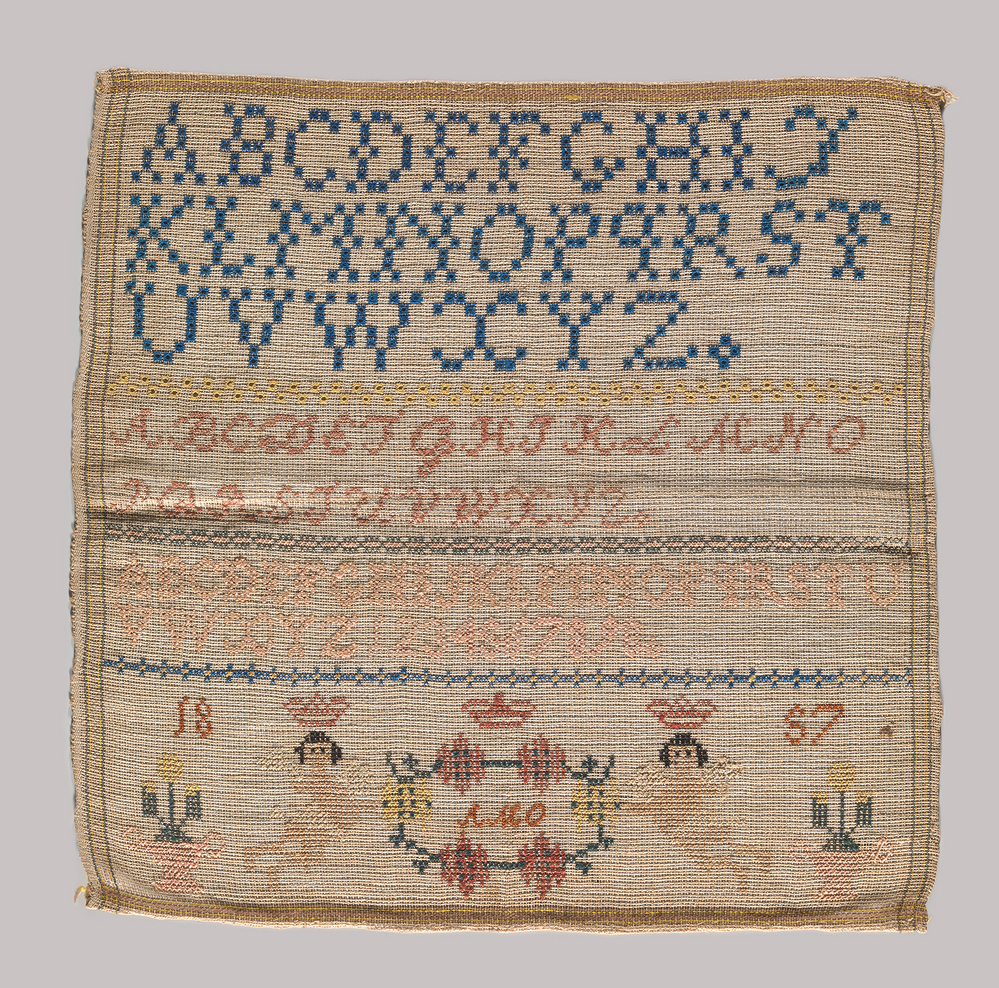 ABCDEFGHIJ
KLMNOPQRST
UVWXYZ.
ABCDEFGHIKLMNO
PQRSTUVWXYZ.
ABCDEFGHIJKLMNOPQRSTU
VWXYZ1234567
18 57
AMO